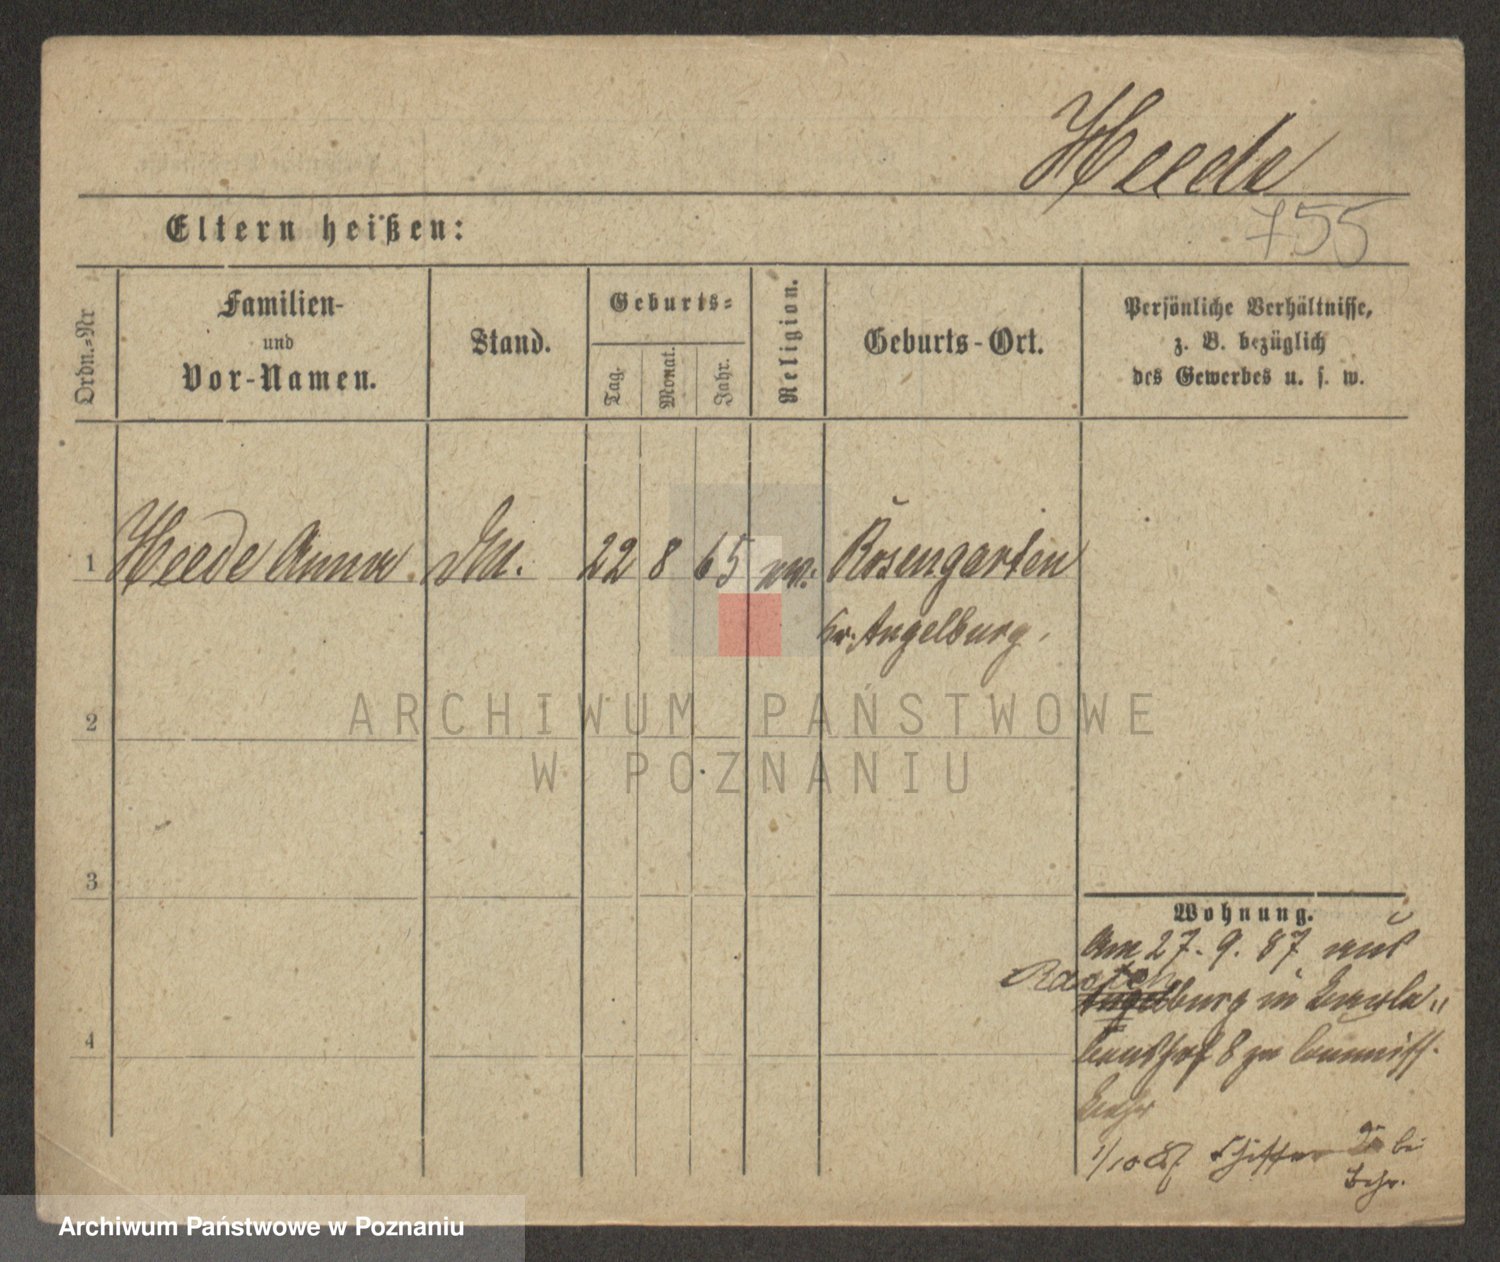 Heede
755
Eltern heißen:
Ordn.-Nr
Familien-
und
Vor-Namen.
Stand.
Geburts-
Tag.
Monat.
Jahr.
Religion.
Geburts-Ort.
Persönliche Verhältnisse,
z. B. bezüglich
des Gewerbes u. s. w.
1 Heede Anna 22 8 65 ev: Rosengarten
Kr. Angelburg.
ARCHIWUM PAŃSTWOWE
W POZNANIU
2
3
4
Wohnung.
Am 27. 9. 87 aus
burg in
8 zu
1/10 87 bei
Archiwum Państwowe w Poznaniu